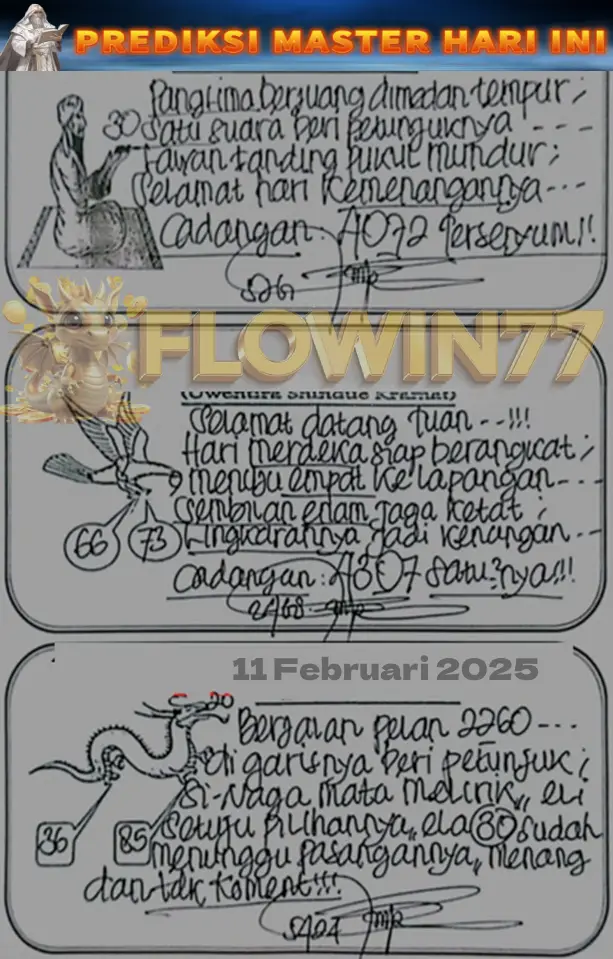 PREDIKSI MASTER HARI INI
Panglima berjuang dimedan tempur;
30 Satu suara beri petunguknya ---
Lawan tanding pukul mundur;
Selamat hari kemenangannya---
Cadangan: 4072 Tersenyum!!
FLOWIN77
Selamat datang Tuan --!!!
Hari merdeka siap berangkat;
menibu empat ke lapangan---
Sembilan enam Jaga ketat;
66 73 Lingkarannya Jadi kenangan--
Cadangan: 4307 Satu?nya!!!
11 Februari 2025
20
Berjalan pelan 2260---
di garisnya beri petunjuk;
Si-Naga mata melirik,,
setuju pilihannya,, ela 80 sudah
36 85
menunggu pasangannya,, menang
dan tak koment!!!